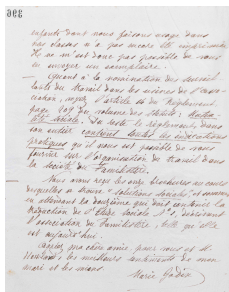 396
enfants dont nous faisons usage dans
nos classes n'a pas encore été imprimée
Il ne m'est donc pas possible de vous
en envoyer un exemplaire.
— Quant à la nomination des surveil
lants du travail dans les usines de l'asso
ciation, voyez l'article 96 du Règlement
page 109 du volume des statuts : Mutua
lité sociale. Du reste le règlement dans
son entier contient toutes les indications
pratiques qu'il nous est possible de vous
fournir sur l'organisation du travail dans
la Société du Familistère.
Nous avons reçu les onze brochures au moyen
desquelles
en attendant la douzième qui doit contenir la
traduction de
l'association du Familistère, telle qu'elle
est aujourd'hui.
Agréez, cher ami, pour vous et
les meilleurs sentiments de mon
mari et les miens.
Marie Godin